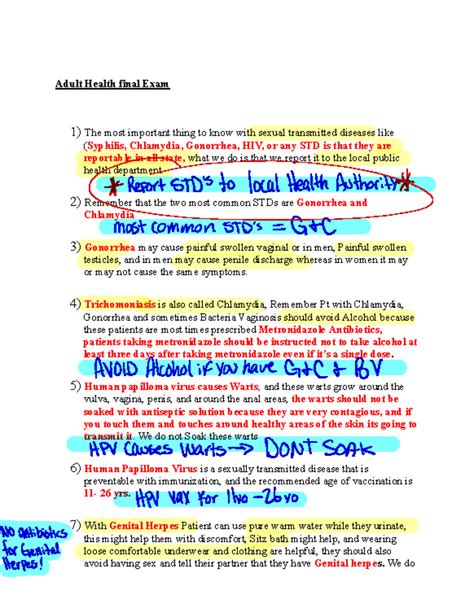 Adult Health final Exam
1) The most important thing to know with sexual transmitted diseases like
(Syphilis, Chlamydia, Gonorrhea, HIV, or any STD is that they are
reportable in all state, what we do is that we report it to the local public
health department.
* Report STD's to local Health Authority *
2) Remember that the two most common STDs are Gonorrhea and
Chlamydia
most common STD's = G+C
3) Gonorrhea may cause painful swollen vaginal or in men, Painful swollen
testicles, and in men may cause penile discharge whereas in women it may
or may not cause the same symptoms.
4) Trichomoniasis is also called Chlamydia, Remember Pt with Chlamydia,
Gonorrhea and sometimes Bacteria Vaginosis should avoid Alcohol because
these patients are most times prescribed Metronidazole Antibiotics,
patients taking metronidazole should be instructed not to take alcohol at
least three days after taking metronidazole even if it's a single dose.
AVOID Alcohol if you have G+C + BV
5) Human papilloma virus causes Warts, and these warts grow around the
vulva, vagina, penis, and around the anal areas, the warts should not be
soaked with antiseptic solution because they are very contagious, and if
you touch them and touches around healthy areas of the skin its going to
transmit it. We do not Soak these warts
HPV causes warts → DONT SOAK
6) Human Papilloma Virus is a sexually transmitted disease that is
preventable with immunization, and the recommended age of vaccination is
11- 26 yrs.
HPV vax for 11yo -26yo
7) With Genital Herpes Patient can use pure warm water while they urinate,
this might help them with discomfort, Sitz bath might help, and wearing
loose comfortable underwear and clothing are helpful, they should also
avoid having sex and tell their partner that they have Genital herpes. We do
NO antibiotics
for Genital
Herpes!